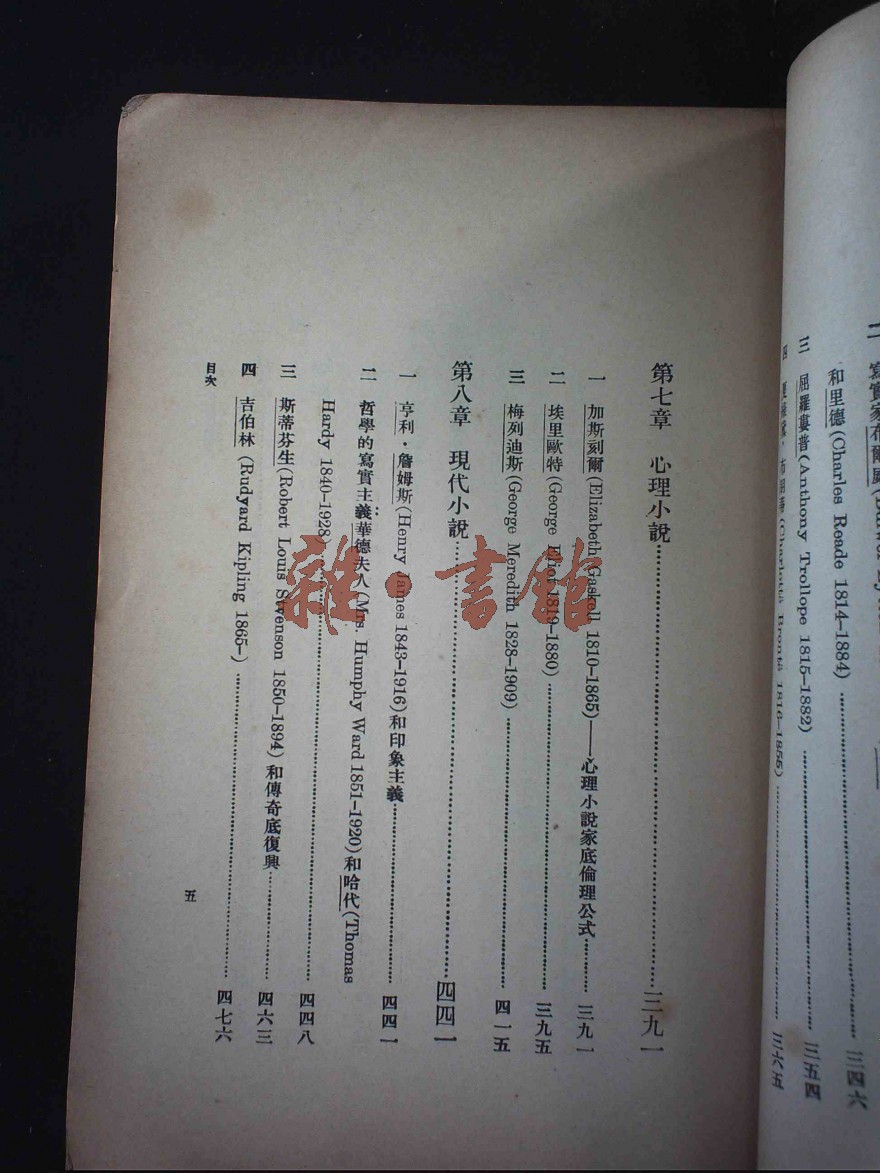 和里德(Charles Reade 1814–1884)……三四六
三 屈羅婁普(Anthony Trollope 1815–1882)……三五四
(Charlotta Brontë 1816–1855)……三六五
第七章 心理小說……三九一
一 加斯刻爾(Elizabeth Gaskell 1810–1865)——心理小說家底倫理公式……三九一
二 埃里歐特(George Eliot 1819–1880)……三九五
三 梅列迪斯(George Meredith 1828–1909)……四一五
第八章 現代小說……四四一
一 亨利・詹姆斯(Henry James 1843–1916)和印象主義……四四一
二 哲學的寫實主義:華德夫人(Mrs. Humphy Ward 1851–1920)和哈代(Thomas
Hardy 1840–1928)……四四八
三 斯蒂芬生(Robert Louis Stvenson 1850–1894)和傳奇底復興……四六三
四 吉伯林(Rudyard Kipling 1865–)……四七六
目次
五
雜・書館